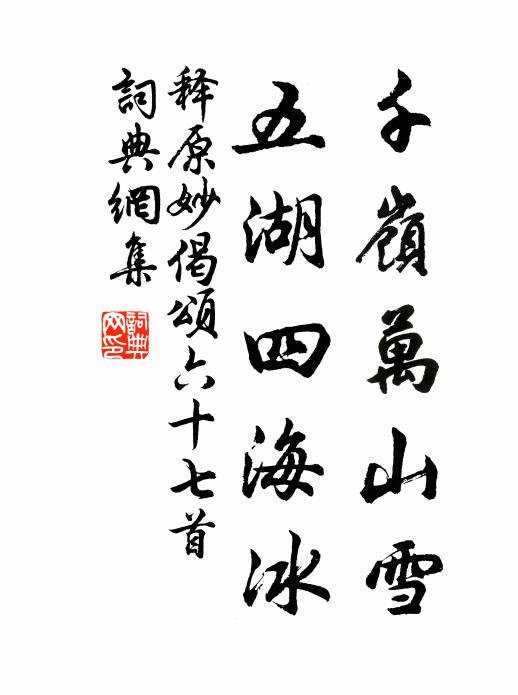 千嶺萬山雪
五湖四海冰
释原妙偈頌六十七首
詞典網集
詞典
网印